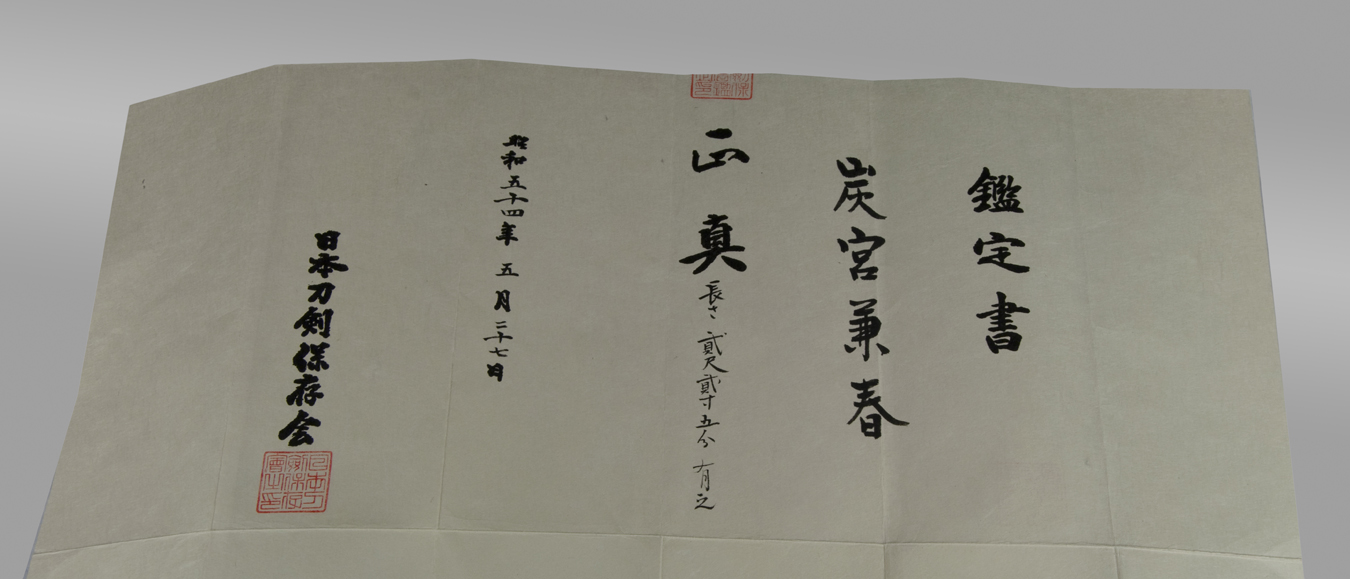 鑑定書
炭宮兼春
正真
長さ 貳尺貳寸五分 有之
昭和五十四年 五月二十七日
日本刀剣保存会